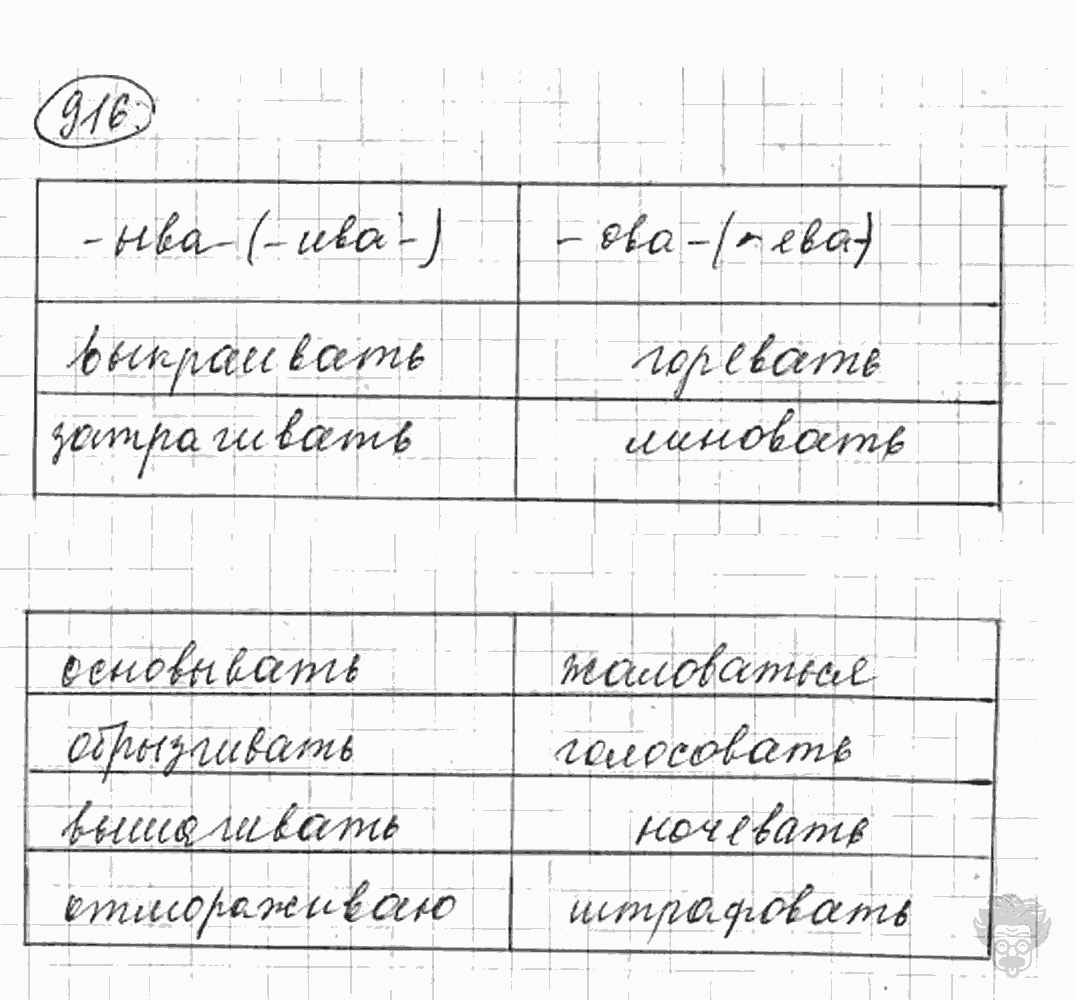 916
-ыва-(-ива-) -ова-(-ева-)
выкраивать горевать
затрагивать линовать
основывать жаловаться
обрызгивать голосовать
вышагивать ночевать
отмораживаю штрафовать